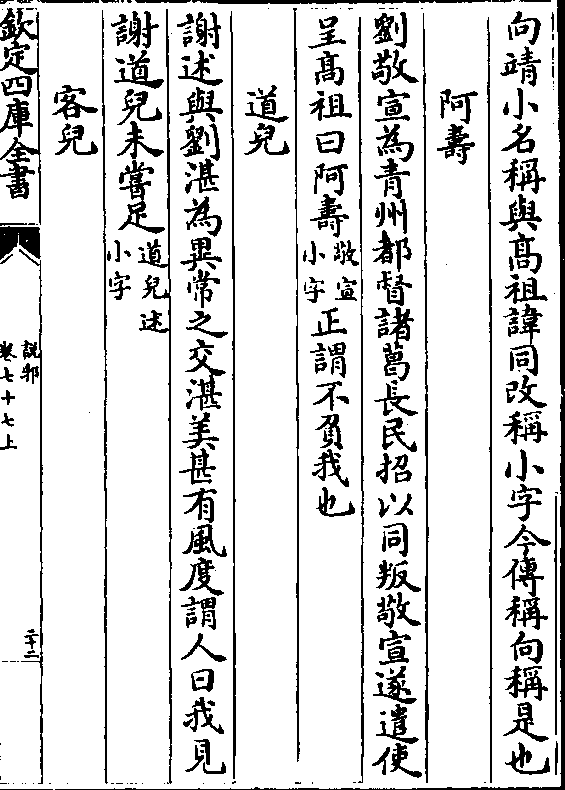 向靖小名稱與髙祖諱同改稱小字今傳稱向稱是也
阿壽
劉敬宣為青州都督諸葛長民招以同叛敬宣遂遣使
呈髙祖曰阿壽敬宣小字正謂不負我也
道兒
謝述與劉湛為異常之交湛美甚有風度謂人曰我見
謝道兒未嘗足道兒述小字
客兒
欽定四庫全書
說郛
卷七十七上
二十二